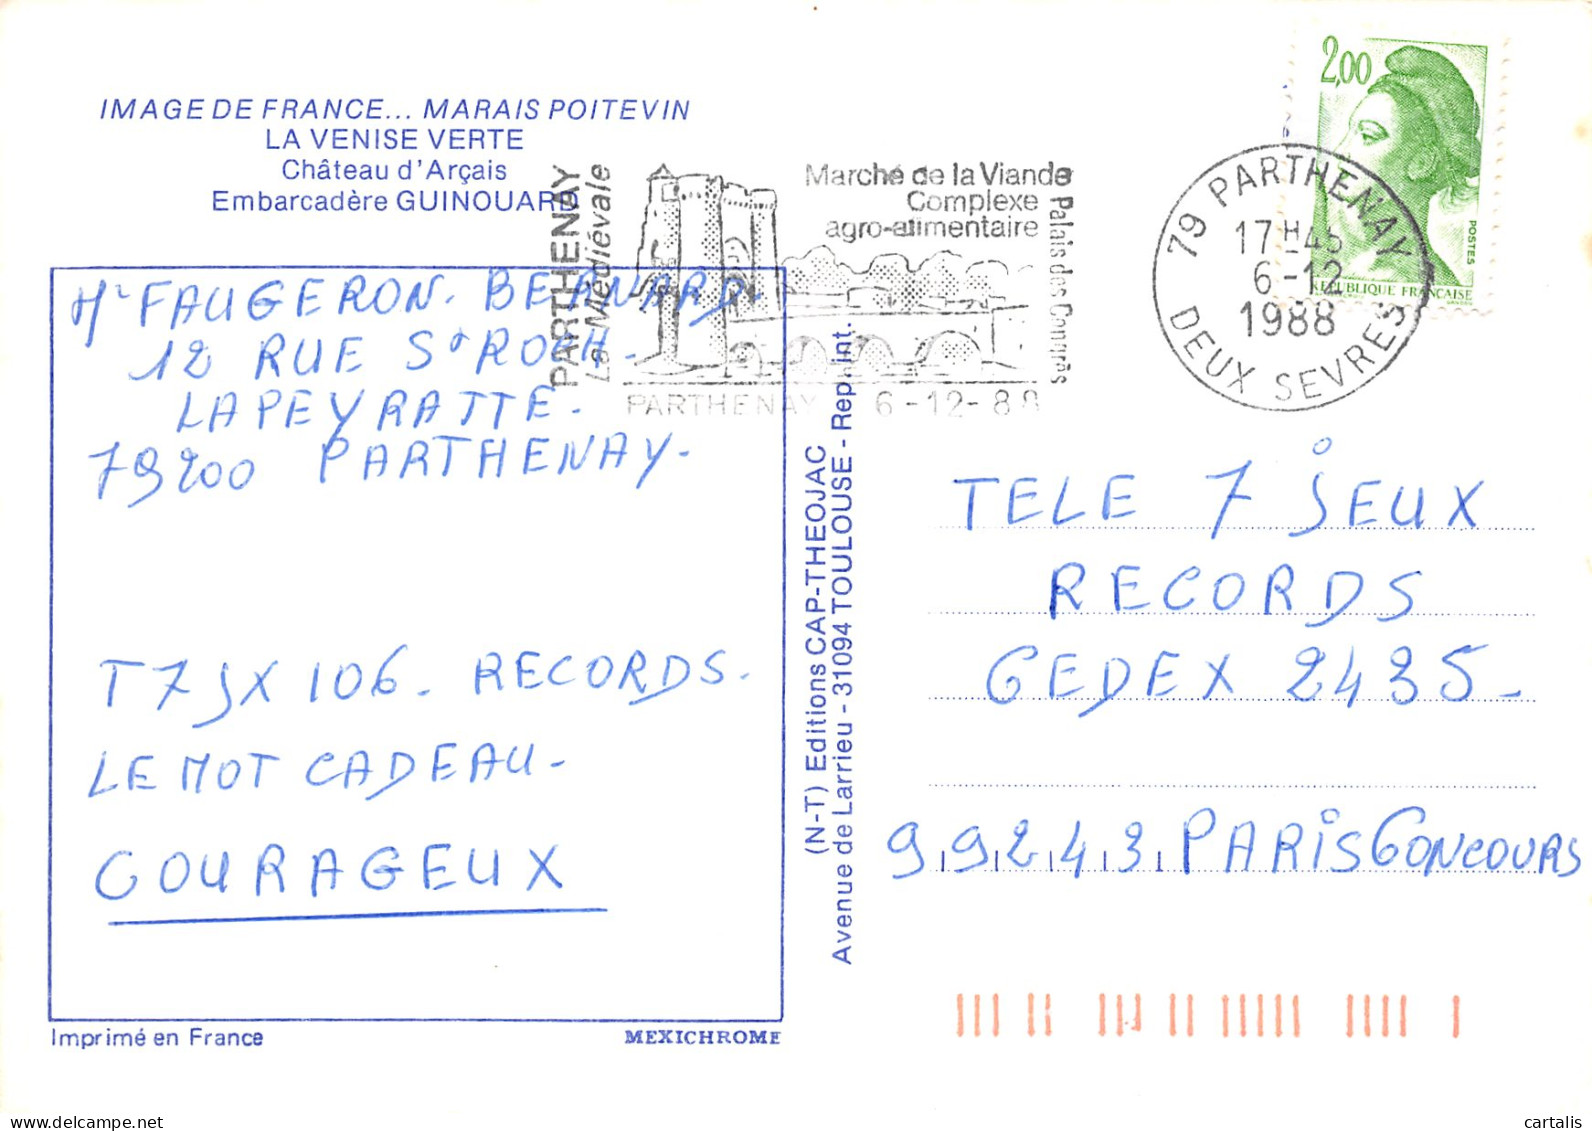 IMAGE DE FRANCE... MARAIS POITEVIN
LA VENISE VERTE
Château d'Arçais
Embarcadère GUINOUARD
PARTHENAY
La Médiévale
Marché de la Viande
Complexe
agro-alimentaire
Palais des Congrès
PARTHENAY 6-12-88
2,00
POSTES
REPUBLIQUE FRANÇAISE
79 PARTHENAY
17H45
6-12
1988
DEUX SEVRES
Mr FAUGERON. BERNARD.
12 RUE St ROCH.
LAPEYRATTE.
79200 PARTHENAY-
T7JX 106. RECORDS.
LE MOT CADEAU-
COURAGEUX
(N-T) Editions CAP-THEOJAC
Avenue de Larrieu - 31094 TOULOUSE - Rep. int.
TELE 7 JEUX
RECORDS
CEDEX 2435-
99243 PARIS CONCOURS
Imprimé en France
MEXICHROME
cartalis